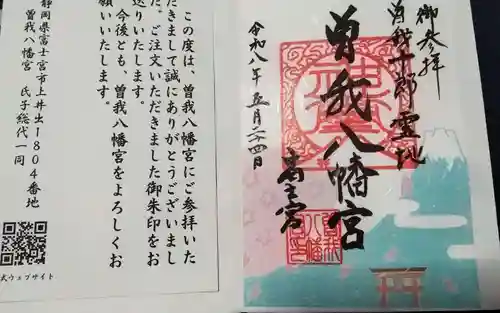 この度は、曽我八幡宮にご参拝いた
だきまして誠にありがとうございまし
た。ご注文いただきました御朱印をお
送りいたします。
今後とも、曽我八幡宮をよろしくお
願いいたします。
静岡県富士宮市上井出1804番地
曽我八幡宮 氏子総代一同
式ウェブサイト
御参拝
曽我十郎霊地
曽我八幡宮
富士宮
令和八年 五月二十四日
曽我
八幡
宮印